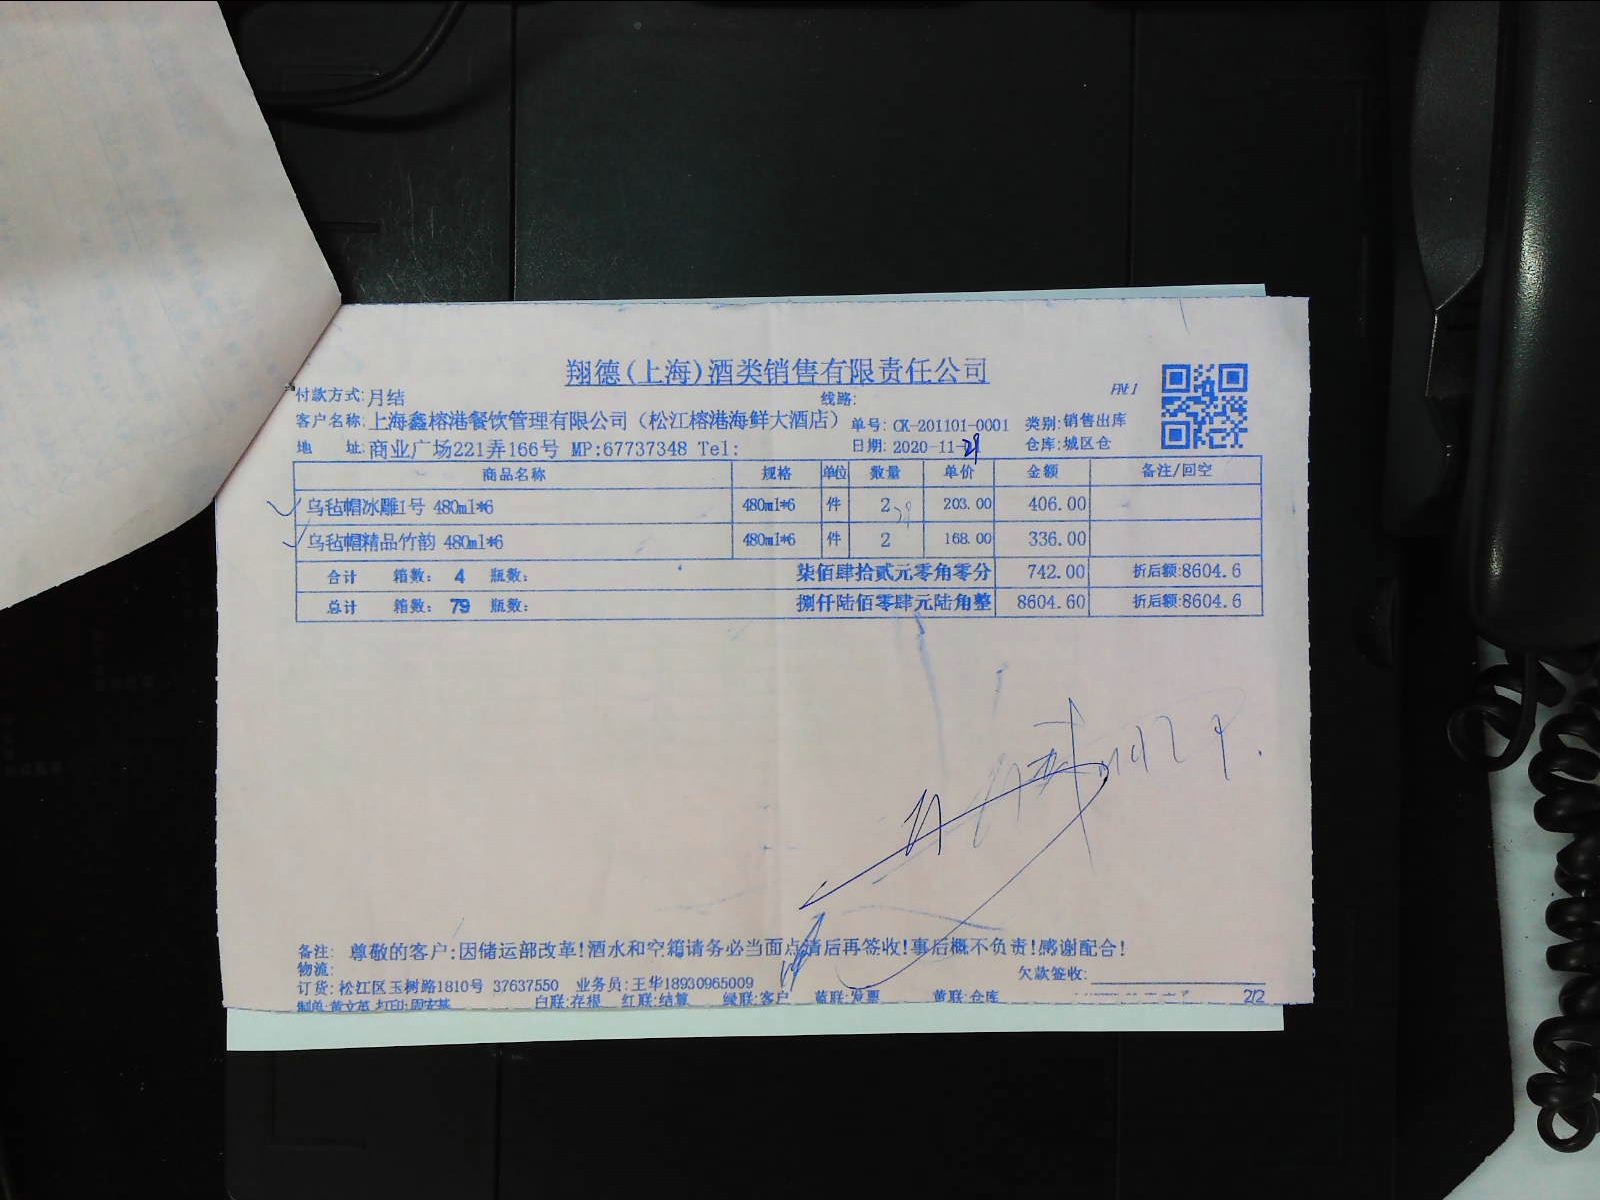 翔德(上海)酒类销售有限责任公司
付款方式:月结 线路:
客户名称:上海鑫榕港餐饮管理有限公司（松江榕港海鲜大酒店） 单号: CK-201101-0001 类别:销售出库
地 址:商业广场221弄166号 MP:67737348 Tel: 日期: 2020-11- 仓库:城区仓
商品名称 规格 单位 数量 单价 金额 备注/回空
乌毡帽冰雕1号 480ml*6 480ml*6 件 2 203.00 406.00
乌毡帽精品竹韵 480ml*6 480ml*6 件 2 168.00 336.00
合计 箱数: 4 瓶数: 柒佰肆拾贰元零角零分 742.00 折后额:8604.6
总计 箱数: 79 瓶数: 捌仟陆佰零肆元陆角整 8604.60 折后额:8604.6
备注: 尊敬的客户:因储运部改革!酒水和空箱请务必当面点清后再签收!事后概不负责!感谢配合!
物流: 欠款签收:
订货:松江区玉树路1810号 37637550 业务员:王华18930965009
制单:黄文英 打印:周宏基 白联:存根 红联:结算 绿联:客户 蓝联:发票 黄联:仓库 2/2